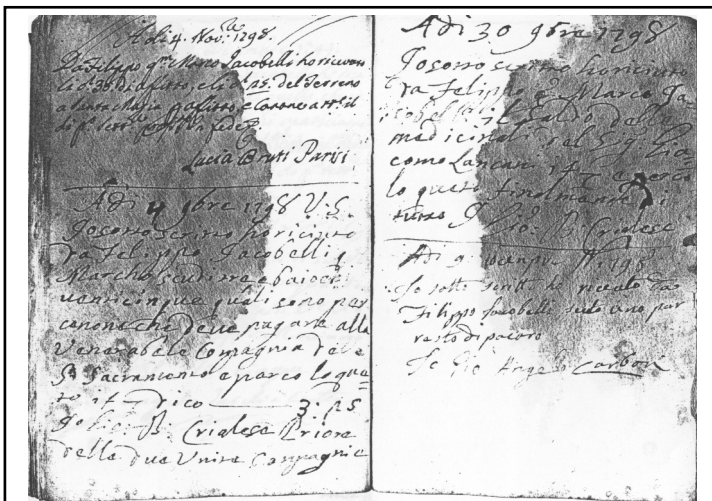 Adi 4. Nov.re 1798.
Da Filippo qm Marco Jacobelli ho ricevuto
di afitto, e li del Terreno
a Santa Maria p afitto, e Canone a tt.o il
di fede
Lucia Bruti Parisi
Adi 4 9bre 1798 V. S.
Jo sonoscrito ho riciuto
da Felippo Jacobelli q
Marcho scudi tre e baiocci
venticinque quali sono per
canone che deve pagare alla
Venerabele Compagnia dele
S: Sacramento e par co lo que
to it dico — 3: 25
Crialese Priore
della due Unite Compagnie
Adi 30 9bre 1798
Jo sonoscrito ho riciuto
da Felippo q Marco Ja
cobelli il saldo delle
medicinali del Sig Gia
como Lancani
lo queto finalmente
Gio: B. Crialese
Adi 9 1798
Io sotto scritto ho ricevuto da
Filippo Jacobelli scudo uno par
resto di pacoro
Io Gio Angelo Carboni